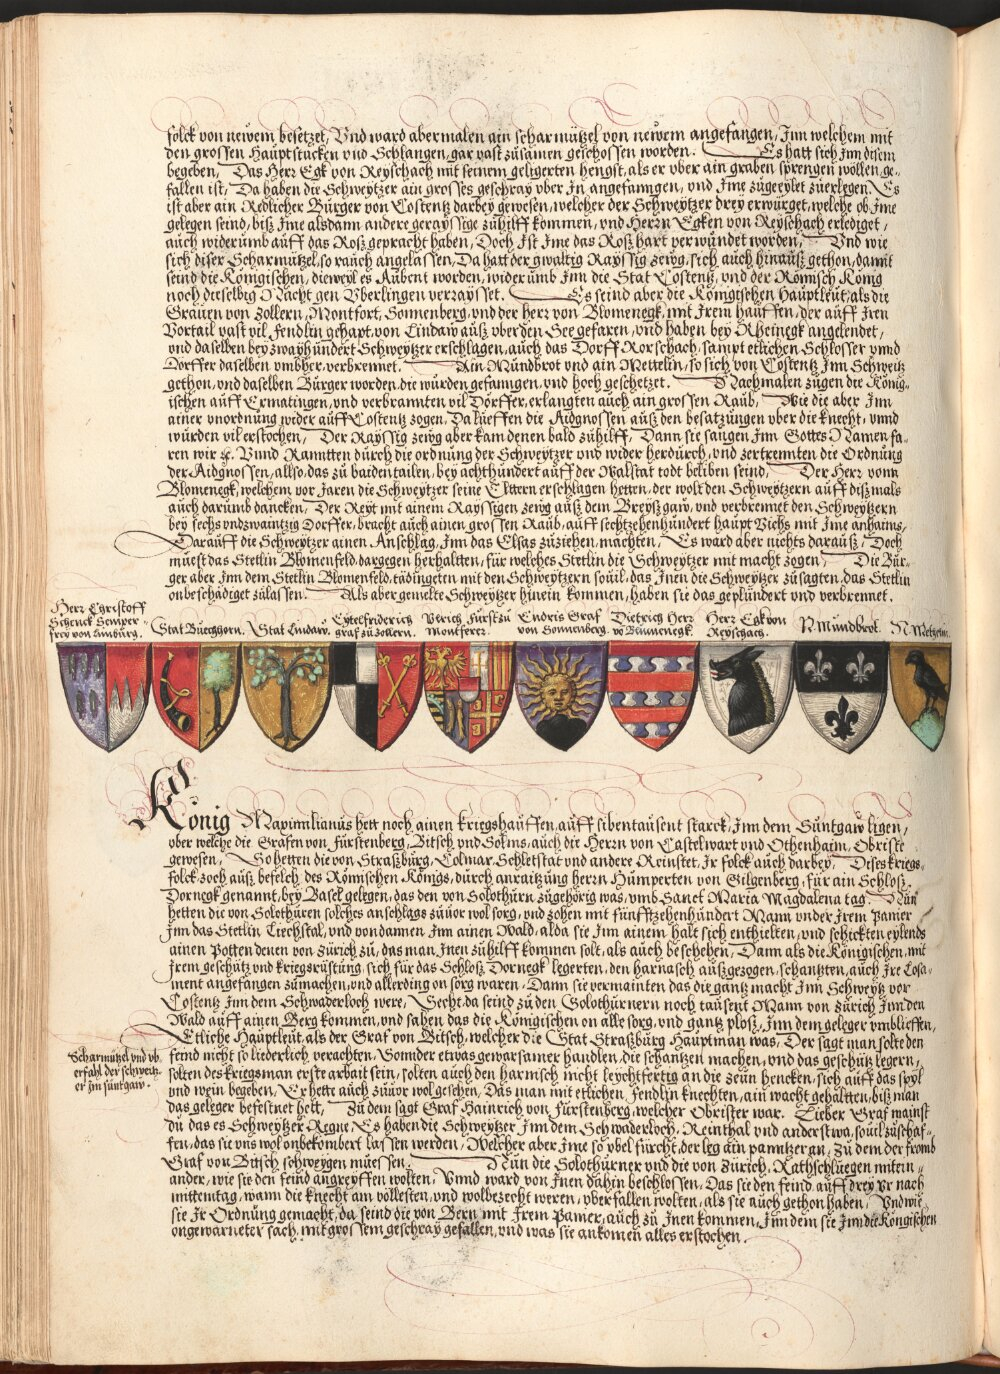 folck von newem besetzet, Vnd ward abermalen ain scharmützel von newem angefangen, Jnn welchem mit
den grossen Hauptstucken vnd Schlangen, gar vast zůsamen geschossen worden. Es hatt sich Jnn disem
begeben, Das Herr Egk von Reyschach mit seinem geligerten hengst, als er vber ain graben sprengen wöllen ge-
fallen ist, Da haben die Schweytzer ain grosses geschray vber Jn anfanngen, vnd Jme zůgeeylet zůerlegen, Es
ist aber ain Redlicher Burger von Costentz darbey gewesen, welcher der Schweytzer drey erwürget, welche ob Jme
gelegen seind, biß Jme alsdann andere gerayssige zůhilff kommen, vnd Herrn Egken von Reyschach erlediget,
auch widerumb auff das Roß gepracht haben, Doch Jst Jme das Roß hart verwundet worden, Vnd wie
sich diser Scharmützel so rauch angelassen, Da hatt der gwaltig Rayssig zewg, sich auch hinauß gethon, damit
seind die Königischen, dieweyl es Aubent worden, widerumb Jnn die Stat Costentz, vnd der Römisch König
noch dieselbig Nacht gen Vberlingen verraysset. Es seind aber die Königischen Hauptleut, als die
Grauen von Zollern, Montfort, Sonnenberg, vnd der herr von Blomenegk, mit Jrem hauffen, der auff Jren
Vortail vast vil fendlin gehapt, von Lindaw auß vber den See gefaren, vnd haben bey Rheinegk angelendet,
vnd daselben bey zwayhundert Schweytzer erschlagen, auch das Dorff Rorschach, sampt etlichen Schlösser vnnd
Dörffer daselben vmbher, verbrennet. Ain Mundbrot vnd ain Mettelin, so sich von Costentz Jnn Schweitz
gethon, vnd daselben Burger worden, die wurden gefanngen, vnd hoch geschetzet. Nachmalen zugen die König-
ischen auff Ermatingen, vnd verbrannten vil Dörffer, erlangten auch ain grossen Raub, Wie die aber Jnn
ainer vnordnung wider auff Costentz zogen, Da lueffen die Aidgnossen auß den besatzungen vber die knecht, vnnd
wurden vil erstochen, Der Rayssig zewg aber kam denen bald zůhilff, Dann sie sangen Jnn Gottes Namen fa-
ren wir &c. Vnnd Ranntten durch die ordnung der Schweytzer vnd wider herdurch, vnd zertrennten die Ordnung
der Aidgnossen, allso, das zu baiden tailen, bey achthundert auff der Walstat todt beliben seind, Der Herr vonn
Blomenegk, welchem vor Jaren die Schweytzer seine Elttern erschlagen hetten, der wolt den Schweytzern auff dißmals
auch darumb dancken, Der Reyt mit ainem Rayssigen zewg auß dem Breyßgaw, vnd verbrennet den Schweytzern
bey sechs vndzwaintzig Dörffer, bracht auch ainen grossen Raub, auff sechtzehenhundert haupt Vichs mit Jme anhaims,
Darauff die Schweytzer ainen Anschlag, Jnn das Elsas zůziehen machten, Es ward aber nichts darauß, Doch
muest das Stetlin Blomenfeld dargegen herhaltten, für welches Stetlin die Schweytzer mit macht zogen, Die Bur-
ger aber Jnn dem Stetlin Blomenfeld, tädingeten mit den Schweytzern souil, das Jnen die Schweytzer zůsagten, das Stetlin
onbeschädiget zůlassen. Als aber gemelte Schweytzer hinein kommen, haben sie das geplündert vnd verbrennet.
Herr Christoff
Schenck Semper-
frey von Limburg.
Stat Buechhorn.
Stat Lindaw.
Eytelfriderich
graf zu Zollern.
Vlrich Furst zu
Montferer.
Endris Graf
von Sonnenberg.
Dietrich Herr
vō Blumenegk.
Herr Egk von
Reyschach.
N. Mundbrot.
N. Metzelin.
König Maximilianus hett noch ainen kriegshauffen, auff sibentausent starck, Jnn dem Suntgaw ligen,
vber welche die Grafen von Fürstenberg, Bitsch vnd Solms, auch die Herrn von Castelwart vnd Othenhaim, Obriste
gewesen, So hetten die von Straßburg, Colmar, Schletstat vnd andere Reinstet, Jr folck auch darbey, Dises kriegs-
folck zoch auß befelch des Römischen Königs, durch anraitzung herrn Humperten von Gilgenberg, für ain Schloß,
Dornegk genannt, bey Basel gelegen, das den von Solothurn zůgehörig was, vmb Sanct Maria Magdalena tag. Nun
hetten die von Solothuren solches anschlags zuuor wol sorg, vnd zohen mit fünfftzehenhundert Mann vnder Jrem Panier
Jnn das Stetlin Liechstal, vnd von dannen Jnn ainen Wald, alda sie Jnn ainem halt sich enthielten, vnd schickten eylends
ainen Potten denen von Zürich zu, das man Jnen zůhilff kommen solt, als auch beschehen, Dann als die Königischen, mit
Jrem geschütz vnd kriegsrüstung, sich für das Schloß Dornegk legerten, den harnasch außgezogen, schantzten, auch Jre Losa-
ment angefangen zůmachen, vnd allerding on sorg waren, Dann sie vermainten das die gantz macht Jnn Schweytz vor
Costentz Jnn dem Schwaderloch were, Secht, da seind zů den Solothurnern noch tausent Mann von Zürich Jnn den
Wald auff ainen Berg kommen, vnd sahen das die Königischen on alle sorg, vnd gantz ploß, Jnn dem geleger vmblieffen,
Etliche Hauptleut, als der Graf von Bitsch, welcher die Stat Straßburg Hauptman was, Der sagt man solte den
feind nicht so liederlich verachten, Sonnder etwas gewarsamer handlen, die schantzen machen, vnd das geschütz legern,
solten des kriegsman erste arbeit sein, solten auch den harnisch nicht leychtfertig an die zeun hencken, sich auff das spyl
vnd wein begeben, Er hette auch zuuor wol gesehen, Das man mit etlichen fendlin knechten, ain wacht gehaltten, biß man
das geleger befestnet hett, Zu dem sagt Graf Hainrich von Fürstenberg, welcher Obrister war. Lieber Graf mainst
du das es Schweytzer Regne, Es haben die Schweytzer Jnn dem Schwaderloch, Reinthal vnd anderstwa, souil zůschaf-
fen, das sie vns wol onbekombert lassen werden, Welcher aber Jme so vbel fürcht, der leg ain panntzer an, Zu dem der fromb
Graf von Bitsch schweygen müessen. Nun die Solothurner vnd die von Zürich, Rathschluegen mitein-
ander, wie sie den feind angreyffen wolten, Vnnd ward von Jnen dahin beschlossen, Das sie den feind auff drey vr nach
mittemtag, wann die knecht am völlesten, vnd wolbezecht weren, vberfallen wolten, als sie auch gethon haben, Vnd wie
sie Jr Ordnung gemacht, da seind die von Bern mit Jrem Panier, auch zů Jnen kommen, Jnn dem sie Jnn die Königischen
ongewarneter sach, mit grossem geschray gefallen, vnd was sie ankomen alles erstochen.
Scharmützel vnd vb-
erfahl der schweitz-
er Jm suntgaw.